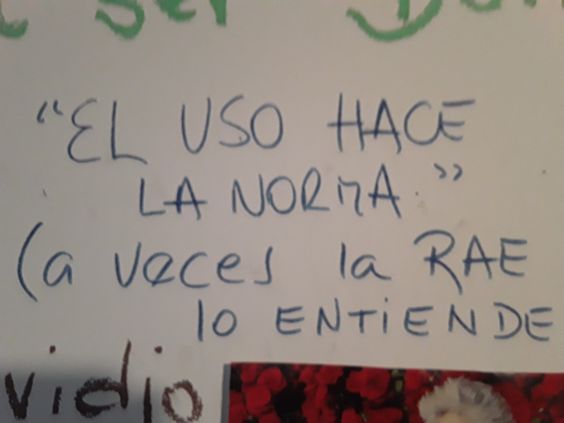 ser
"EL USO HACE
LA NORMA."
(a veces la RAE
lo ENTIENDE
vidio